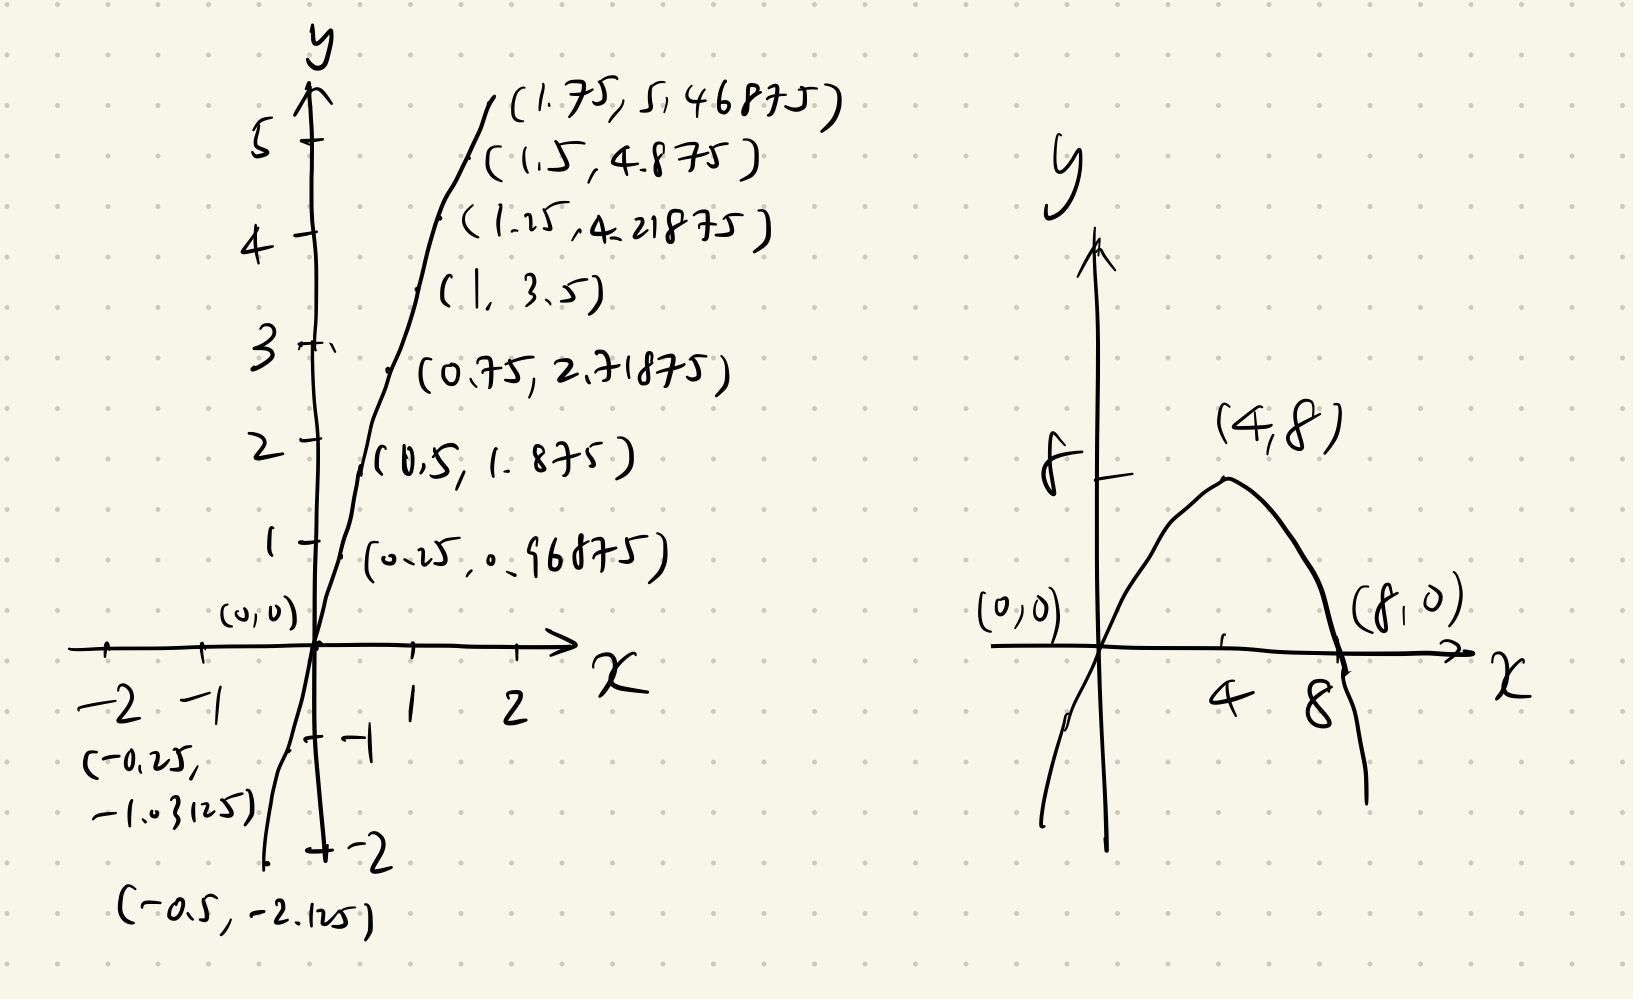 y
(1.75, 5,46875)
5
(1.5, 4.875)
4
(1.25, 4.21875)
(1, 3.5)
3
(0.75, 2.71875)
2
(0.5, 1.875)
1
(0.25, 0.96875)
(0,0)
x
-2 -1 1 2
-1
(-0.25,
-1.03125)
-2
(-0.5, -2.125)
y
(4,8)
8
(0,0)
(8,0)
4 8
x